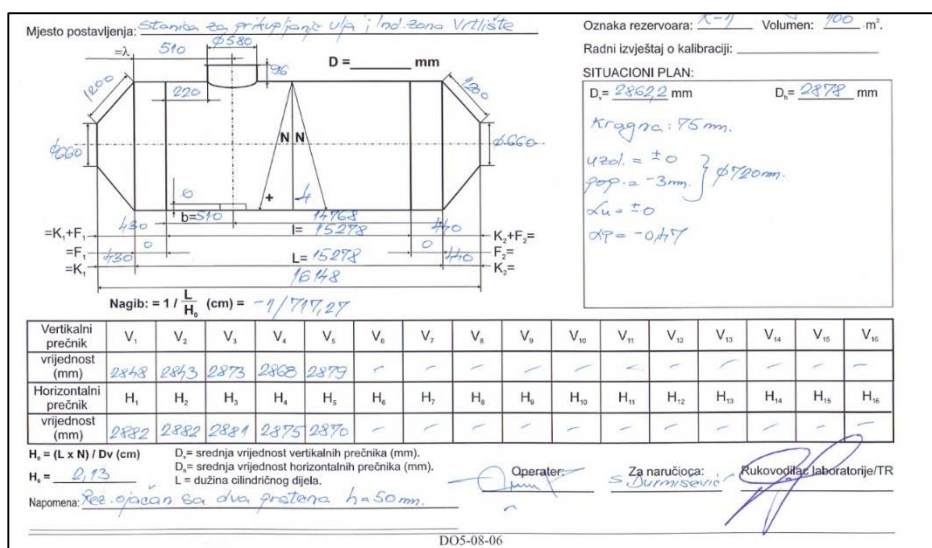 Mjesto postavljenja: Stanica za prikupljanje ulja, Ind. zona Vrtlište
Oznaka rezervoara: K-1 Volumen: 100 m³.
Radni izvještaj o kalibraciji:
SITUACIONI PLAN:
Dᵥ= 2862,2 mm Dₕ= 2878 mm
Kragna: 75 mm.
uzd. = ±0
pop. = -3mm. } ø720mm.
αu = ±0
αp = -0,47
=λ 510 ø580
D = mm
96
1200 1200
220
ø660 ø660
N N
+ -4
6
b=510 14768
=K₁+F₁ 430 l= 15278 440 K₂+F₂=
=F₁ 0 0 F₂=
=K₁ 430 L= 15278 440 K₂=
16148
Nagib: = 1 / L/H₀ (cm) = -1/717,27
Vertikalni prečnik V₁ V₂ V₃ V₄ V₅ V₆ V₇ V₈ V₉ V₁₀ V₁₁ V₁₂ V₁₃ V₁₄ V₁₅ V₁₆
vrijednost (mm) 2848 2843 2873 2868 2879 - - - - - - - - - - -
Horizontalni prečnik H₁ H₂ H₃ H₄ H₅ H₆ H₇ H₈ H₉ H₁₀ H₁₁ H₁₂ H₁₃ H₁₄ H₁₅ H₁₆
vrijednost (mm) 2882 2882 2881 2875 2870 - - - - - - - - - - -
H₀ = (L x N) / Dv (cm)
H₀ = 2,13
Dᵥ= srednja vrijednost vertikalnih prečnika (mm).
Dₕ= srednja vrijednost horizontalnih prečnika (mm).
L = dužina cilindričnog dijela.
Operater: Za naručioca: Rukovodilac laboratorije/TR
S. Durmišević
Napomena: Rez. ojačan sa dva prstena h=50 mm.
DO5-08-06